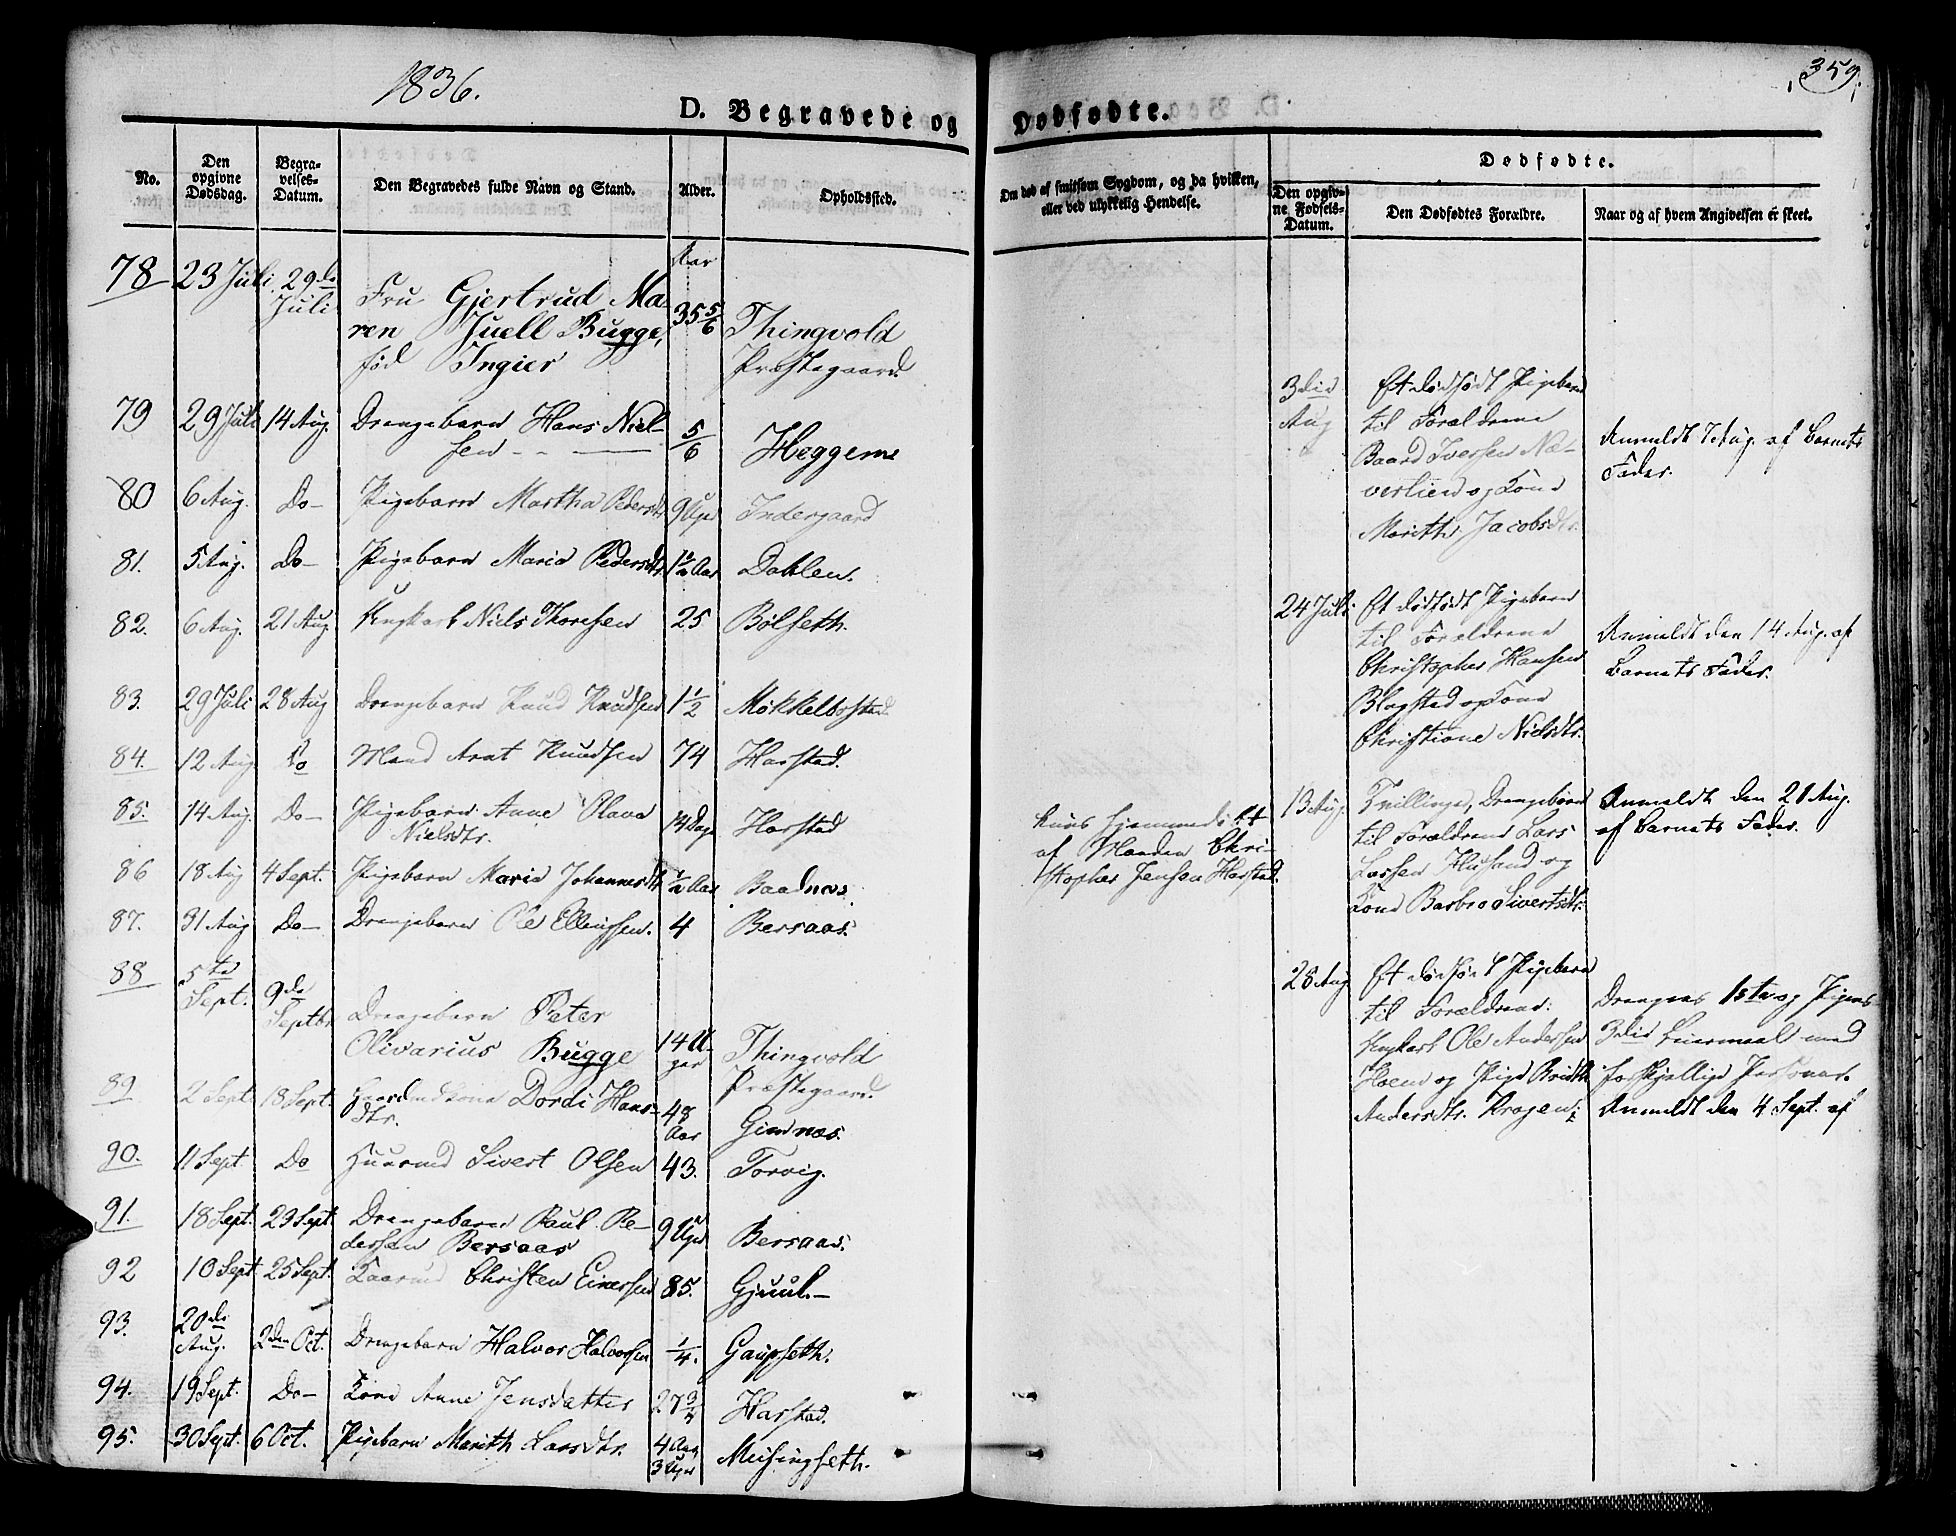 1836.
359.
D. Begravede og Dødfødte.
No.
Den opgivne Dødsdag.
Begravelses-Datum.
Den Begravedes fulde Navn og Stand.
Alder.
Opholdssted.
Om død af smitsom Sygdom, og da hvilken, eller ved ulykkelig Hendelse.
Dødfødte.
Den opgivne Fødsels-Datum.
Den Dødfødtes Forældre.
Naar og af hvem Angivelsen er skeet.
Aar
78 23 Juli 29de Juli Fru Gjertrud Ma-
ren Juell Bugge, 35 5/6 Thingvold
fød Ingier Præstegaard.
79 29 Juli 14 Aug. Drengebarn Hans Niel-
sen 5/6 Heggem
80 6 Aug. Do Pigebarn Martha Pedersdtr 9 Uger Indergaard
81. 5 Aug. Do Pigebarn Maria Pedersdtr. 1 1/2 Aar Dahlen.
82. 6 Aug. 21 Aug. Ungkarl Niels Thoresen 25 Bølseth.
83. 29 Juli 28 Aug Drengebarn Knud Knudsen 1 1/2 Møkkelbostad
84. 12 Aug Do Mand Arnt Knudsen 74 Harstad.
85. 14 Aug. Do Pigebarn Anne Olava
Nielsdtr. 14 Dage Harstad
86 18 Aug 4 Sept. Pigebarn Maria Johannesdtr 1/2 Aar Baadnæs.
87. 31 Aug Do Drengebarn Ole Ellingsen. 4 Bersaas.
88 5te Sept. 9de Septbr Drengebarn Peter
Olivarius Bugge 14 Uger Thingvold
Præstegaard.
89. 2 Sept. 18 Sept. Dordi Hans-
dtr. 48 Aar Gimnæs.
90. 11 Sept Do Huusmd Sivert Olsen 43. Torvig.
91. 18 Sept. 23 Sept. Drengebarn Paul Pe-
dersen Bersaas 9 Uger Bersaas.
92 10 Sept 25 Sept. Christen Einersen 85. Gjuul.
93. 20de Aug. 2den Oct. Drengebarn Halvor Halvorsen 1/4. Gaupseth.
94. 19 Sept. Do Kone Anne Jensdatter 27 3/4 Harstad.
95. 30 Sept. 6 Oct. Pigebarn Marith Larsdtr. 4 Aar
3 Uger Meisingseth.
hans hjemmedøbt
af Manden Chri-
stopher Jensen Harstad.
3die Aug
Et dødfødt Pigebarn
til Forældrene
Baard Iversen Næ-
verlien og Kone
Marith Jacobsdtr.
Anmeldt 7 Aug. af Barnets
Fader.
24 Juli
Et dødfødt Pigebarn
til Forældrene
Christopher Hansen
Blagstad og Kone
Christiane Nielsdtr.
Anmeldt den 14 Aug. af
Barnets Fader.
13 Aug.
Tvillinge, Drengebørn
til Forældrene Lars
Larsen Husund og
Kone Barbro Sivertsdtr.
Anmeldt den 21 Aug.
af Barnets Fader.
28 Aug
Et dødfødt Pigebarn
til Forældrene:
Ungkarl Ole Andersen
Hoem og Pige
Andersdtr. Krogen:
Drengens 1ste og Pigens
3die Leiermaal med
forskjellige Personer.
Anmeldt den 4 Sept. af